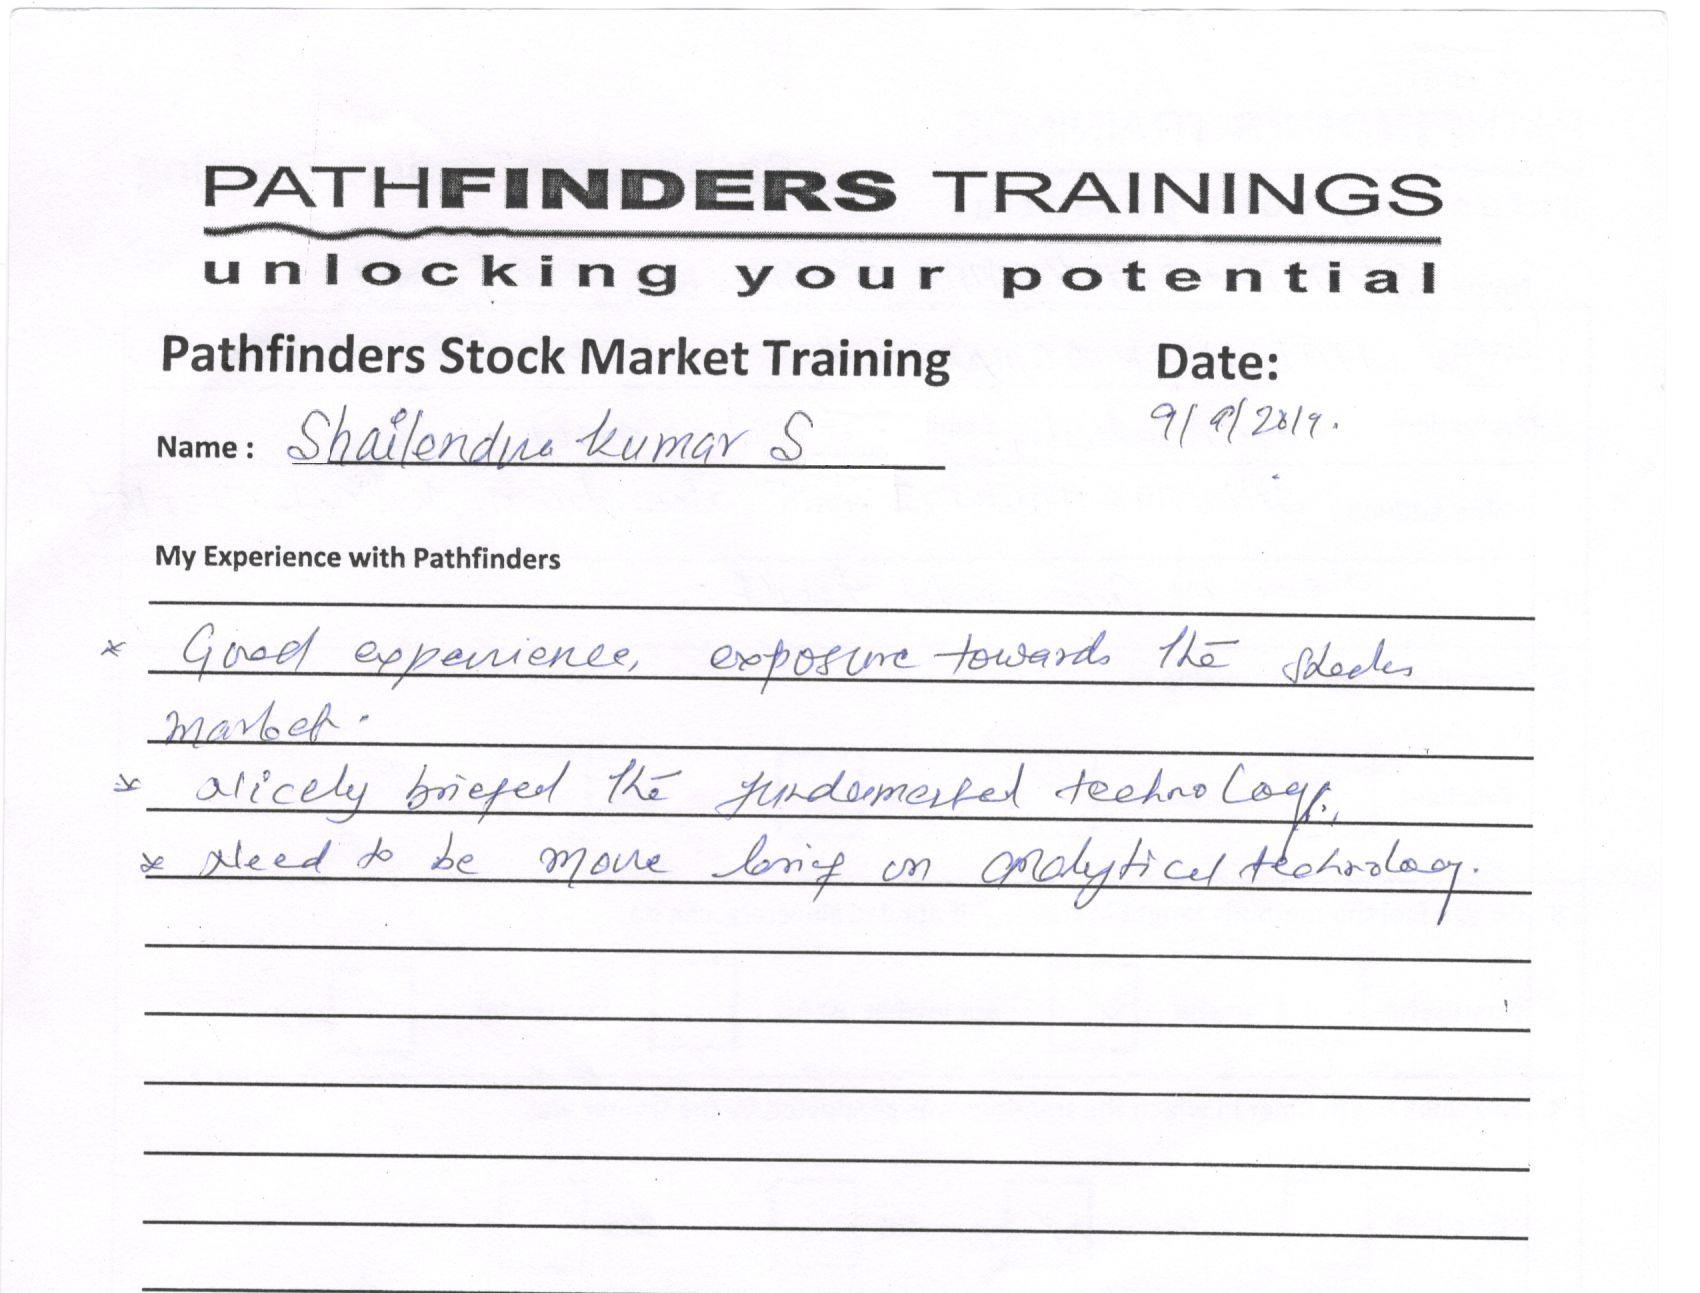 PATHFINDERS TRAININGS
unlocking your potential
Pathfinders Stock Market Training Date:
Name : Shailendra kumar S 9/9/2019.
My Experience with Pathfinders
* Good experience, exposure towards the stocks
market.
* Nicely briefed the fundamental technology.
* Need to be more brief on analytical technology.